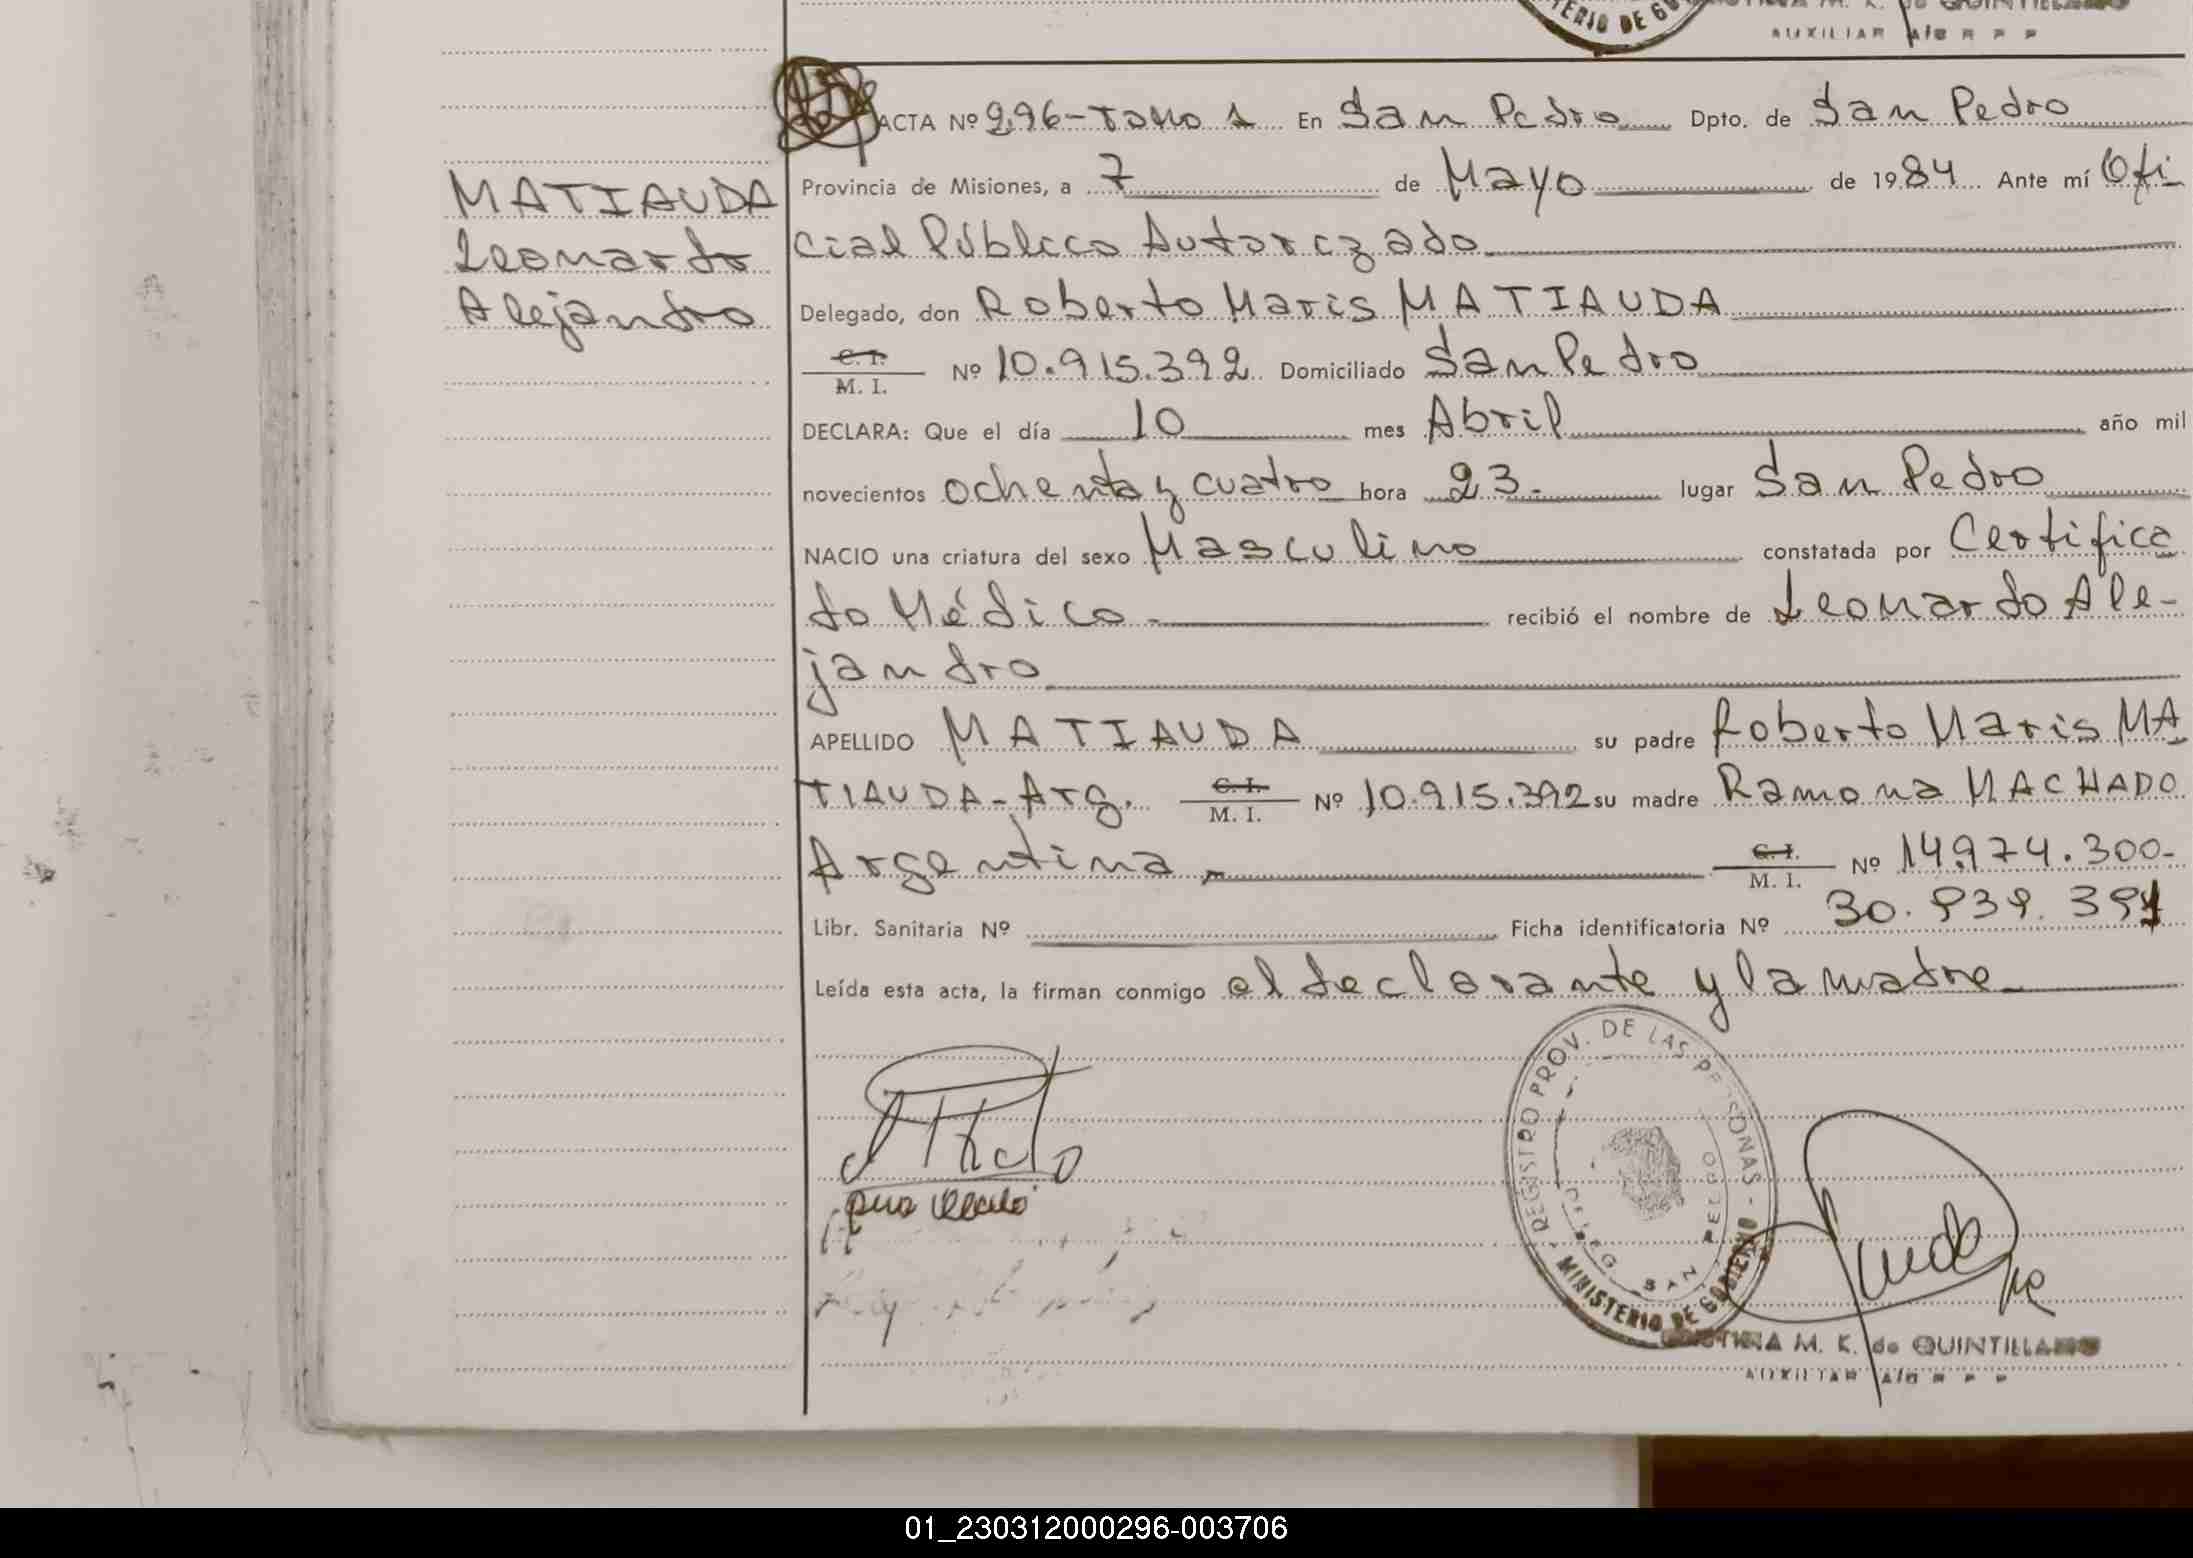 TERIO DE GO
M. K. de QUINTILLANO
AUXILIAR
ACTA Nº 296-Tomo 1 En San Pedro Dpto. de San Pedro
MATIAUDA
Leonardo
Alejandro
Provincia de Misiones, a 7 de Mayo de 1984 Ante mí Ofi
cial Público Autorizado
Delegado, don Roberto Maris MATIAUDA
C. I.
M. I. Nº 10.915.392 Domiciliado San Pedro
DECLARA: Que el día 10 mes Abril año mil
novecientos ochenta y cuatro hora 23.- lugar San Pedro
NACIO una criatura del sexo Masculino constatada por Certifica
do Médico.- recibió el nombre de Leonardo Ale-
jandro
APELLIDO MATIAUDA su padre Roberto Maris MA
TIAUDA-Arg. C. I. M. I. Nº 10.915.392 su madre Ramona MACHADO
Argentina.- C. I. M. I. Nº 14.974.300-
Libr. Sanitaria Nº Ficha identificatoria Nº 30.939.391
Leída esta acta, la firman conmigo el declarante y la madre.-
REGISTRO PROV. DE LAS PERSONAS
DELEG. SAN PEDRO
MINISTERIO DE GOBIERNO
M. K. de QUINTILLANO
AUXILIAR
01_230312000296-003706